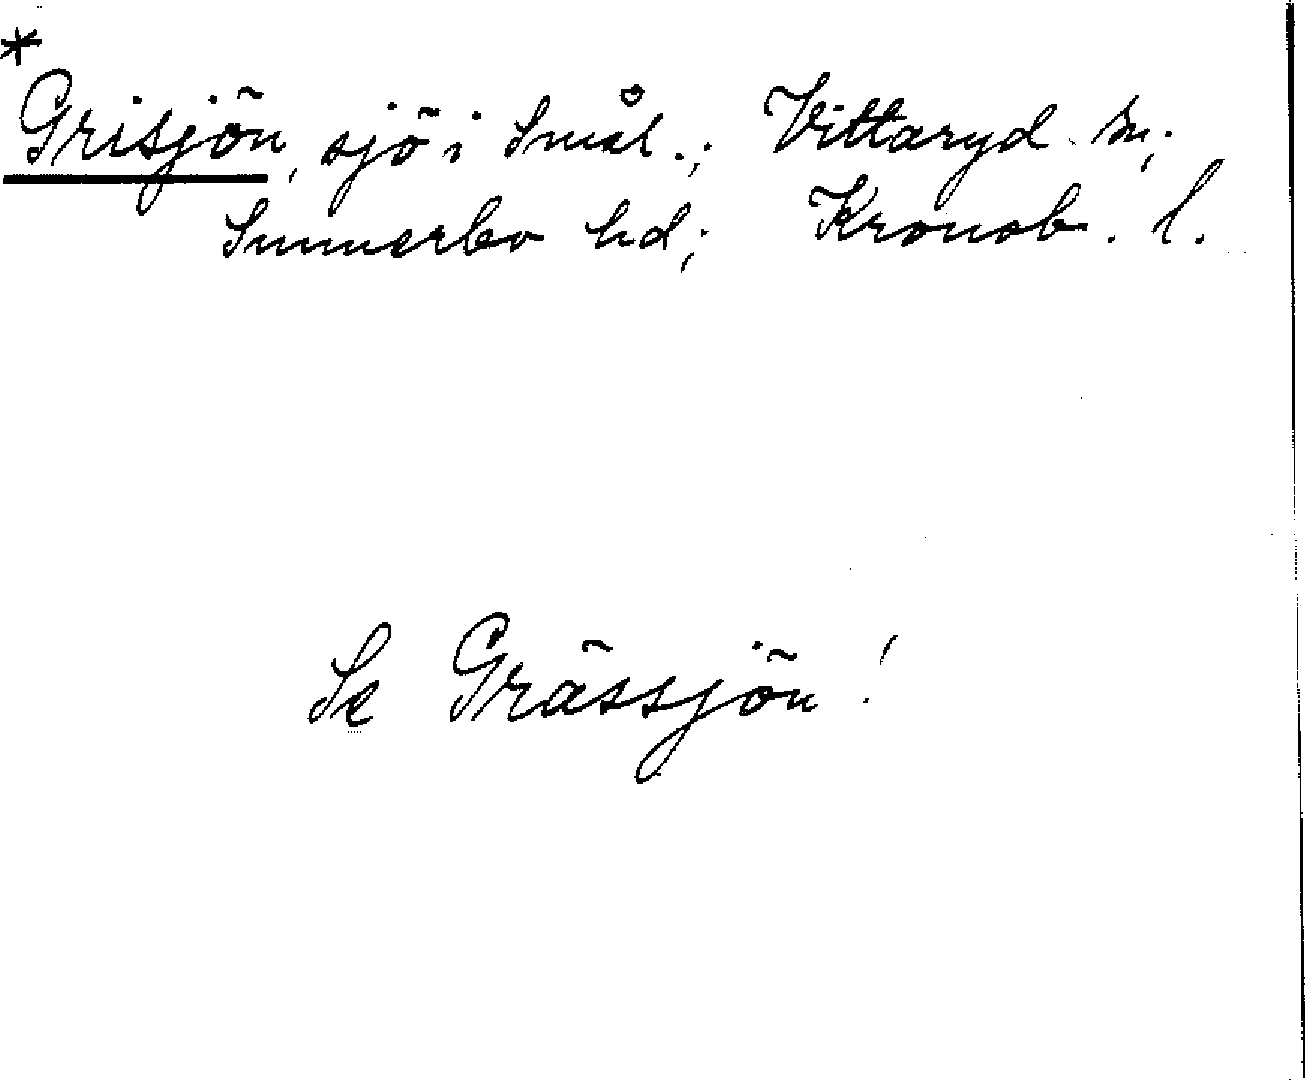 *
Grisjön, sjö i Smål.; Vittaryd sn;
Sunnerbo hd; Kronob. l.
Se Grässjön!